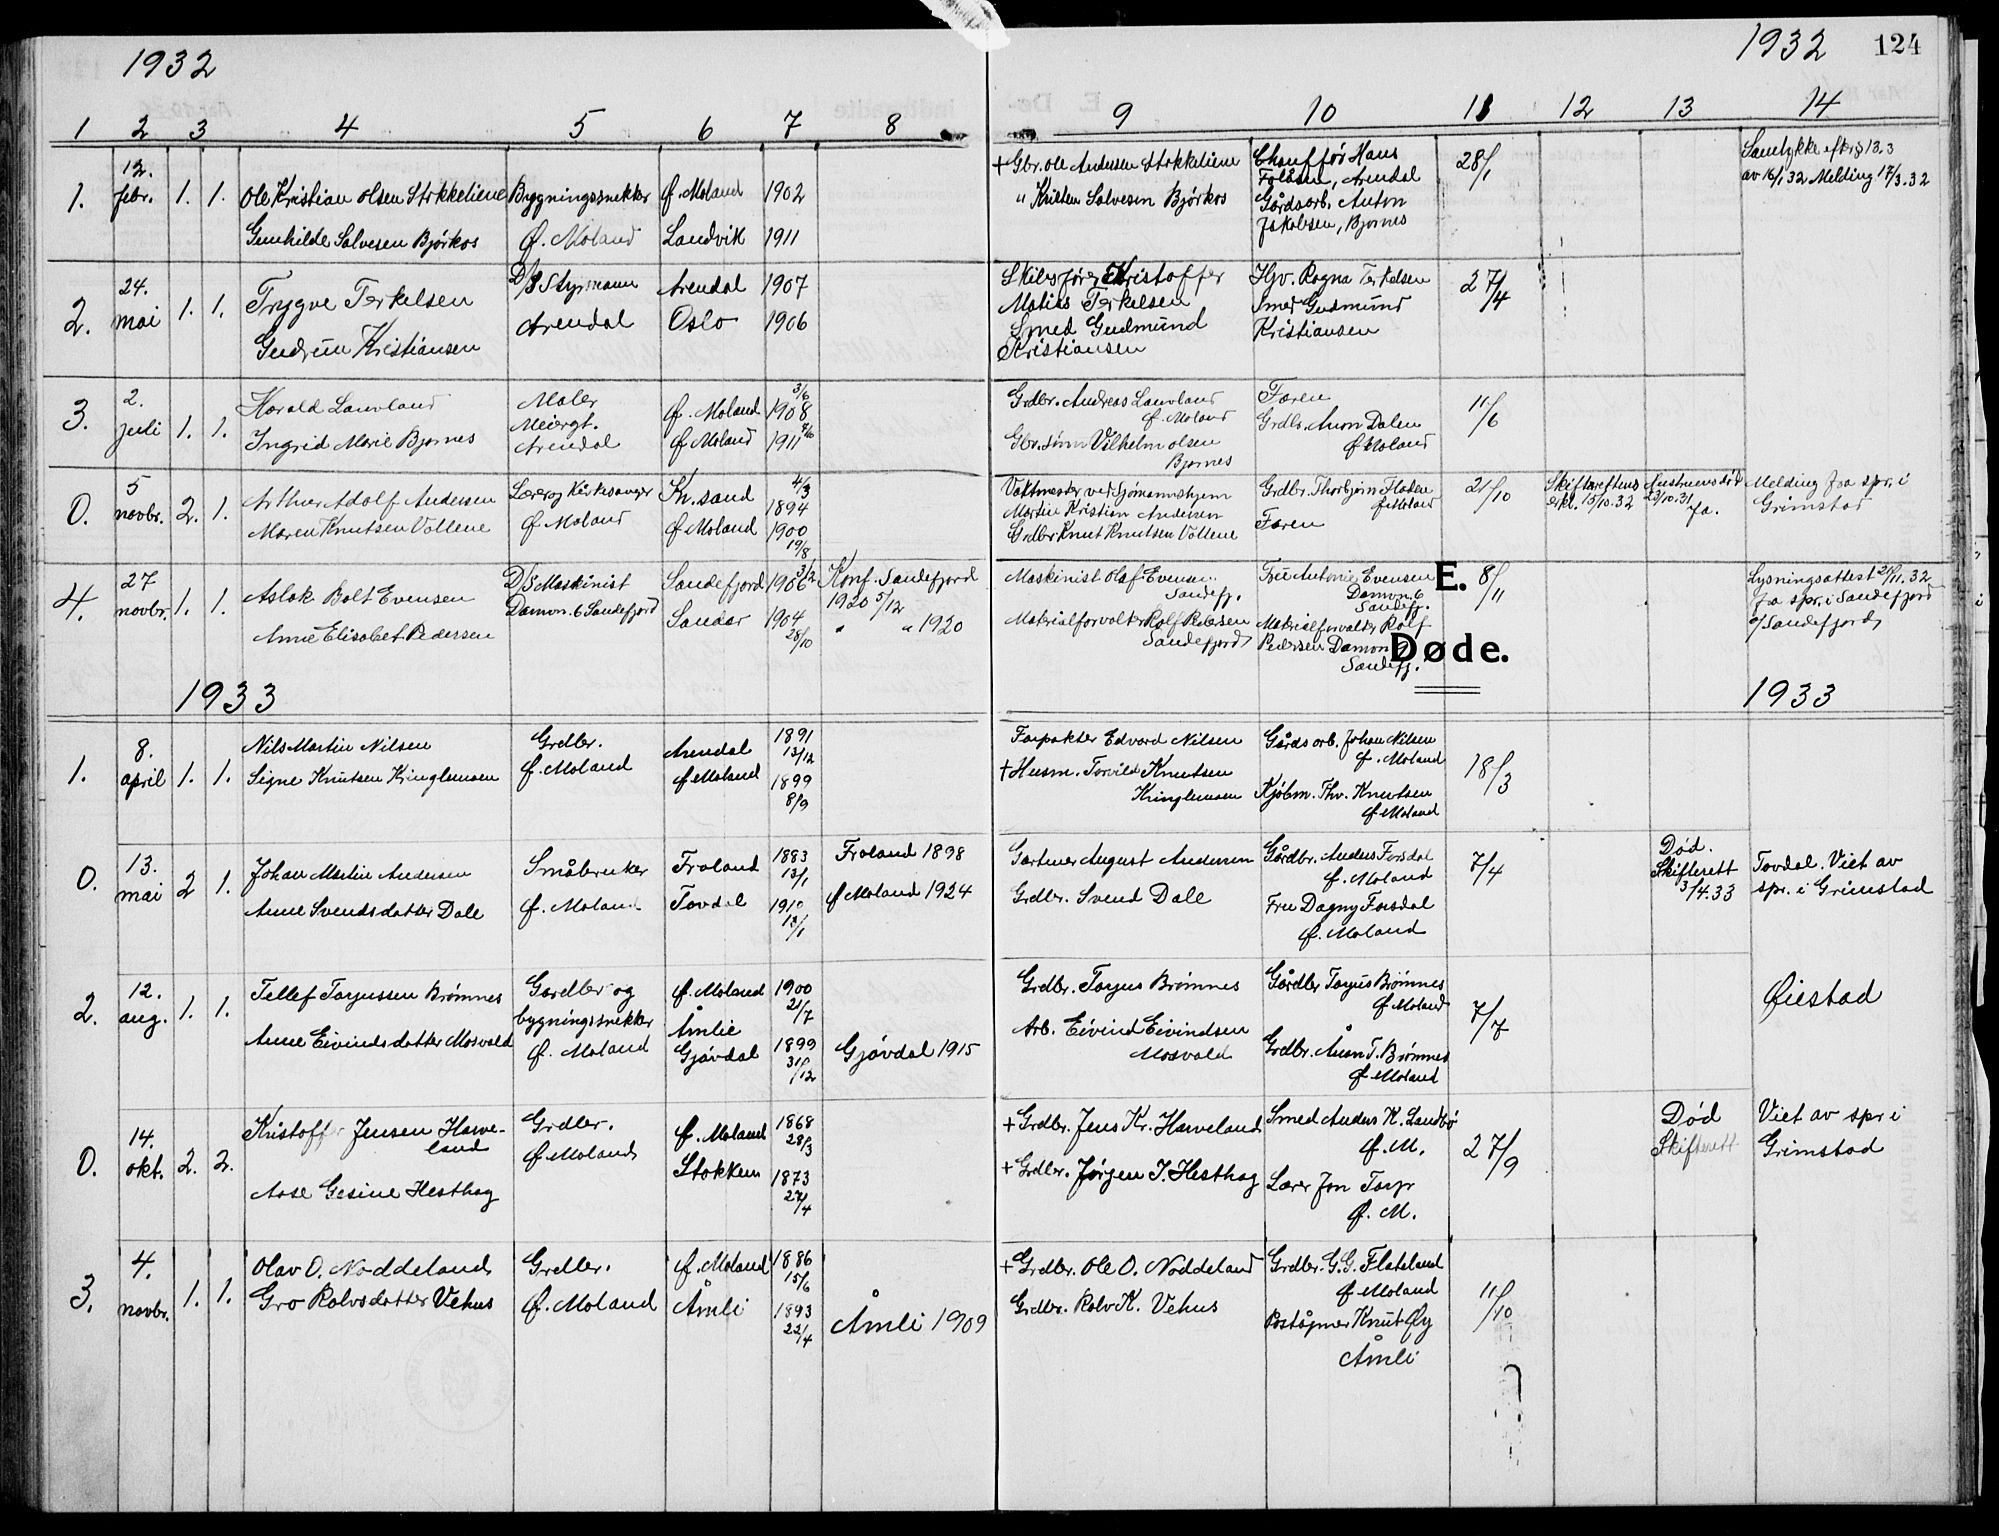 1932
1 2 3 4 5 6 7 8
1. 12. febr. 1. 1. Ole Kristian Olsen Stokkeliene Bygningssnekker Ø. Moland 1902
Gunhilde Salvesen Bjørkos Ø. Moland Landvik 1911
2. 24. mai 1. 1. Trygve Terkelsen D/S Styrmann Arendal 1907
Gudrun Kristiansen Arendal Oslo 1906
3. 2. juli 1. 1. Harald Lauvland Maler Ø. Moland 3/6 1908
Ingrid Marie Bjornes Meiergt. Arendal Ø. Moland 1911
0. 5 novbr. 2. 1. Arthur Adolf Andersen Lærer og Kirkesanger Kr. sand 4/3 1894
Maren Knutsen Vollene Ø. Moland Ø. Moland 1900 19/8
4. 27 novbr. 1. 1. Aslak Bolt Evensen D/S Maskinist Sandefjord 1906 3/2 Konf. Sandefjord 1920 5/12
Anne Elisabet Pedersen Damon. 6 Sandefjord Sandar 1904 28/10 " " 1920
1933
1. 8. april 1. 1. Nils Martin Nilsen Grdbr. Arendal 1891 13/12
Signe Knutsen Kringlemoen Ø. Moland Ø. Moland 1899 8/9
0. 13. mai 2 1. Johan Martin Andersen Småbruker Froland 1883 13/1 Froland 1898
Anne Svendsdatter Dale Ø. Moland Tovdal 1910 13/1 Ø Moland 1924
2. 12. aug. 1. 1. Tellef Torjussen Brømnes Gardbr og bygningssnekker Ø. Moland 1900 21/7
Anne Eivindsdatter Mosvald Ø. Moland Åmlie Gjövdal 1899 31/12 Gjövdal 1915
0. 14. okt. 2. 2. Kristoffer Jensen Harveland Grdbr. Ø. Moland 1868 28/3
Aase Gesine Hesthag Ø Moland Stokken 1873 27/4
3. 4. novbr. 1. 1. Olav O. Noddeland Grdbr. Ø. Moland 1886 15/6
Gro Rolvsdatter Vehus Ø. Moland Åmli 1893 22/4 Åmli 1909
1932 124
9 10 11 12 13 14
+ Gbr. Ole Andersen Stokkeliene Chauffør Hans Foldsen, Arendal 28/1 Samtykke efter § 13.3
" Kristen Salvesen Bjørkos Gårdsarb. Anton Jakobsen, Bjornes av 16/1 32 Melding 17/3.32
Skibsfører Kristoffer Matias Terkelsen Hjv. Ragna Terkelsen 27/4
Smed Gudmund Kristiansen Smed Gudmund Kristiansen
Grdbr. Andreas Lauvland Ø. Moland Faren 11/6
Gbr. sønn Vilhelm Olsen Bjornes Grdbr. Anon Dalen Ø Moland
Vaktmester ved Sjømannshjem Martin Kristian Andersen Grdbr. Thorbjørn Flaten Ø Moland 21/10 Skifterettens erkl. 15/10.32 Hustruens död 23/10.31 Ja. Melding fra spr. i Grimstad
Grdbr Knut Knutsen Vollene Faren
Maskinist Olaf Evensen Sandefj. Fru Antonie Evensen Damon. 6 Sandefj. 8/11 Lysningsattest 21/11.32 fra spr. i Sandefjord
Materialforvalter Rolf Pedersen Sandefjord Materialforvalter Rolf Pedersen Damon Sandefj. Sandefjord
E.
Døde.
1933
Forpakter Edvard Nilsen Gårds arb. Johan Nilsen Ø. Moland 18/3
+ Husm. Torvild Knutsen Kringlemoen Kjøbm. Thv. Knutsen Ø Moland
Gartner August Andersen Gårdbr. Anders Forsdal Ø. Moland 7/4 Död. Skifterett 3/4.33 Tovdal. Viet av spr. i Grimstad
Grdbr. Svend Dale Fru Dagny Forsdal Ø. Moland
Grdbr. Torjus Brømnes Gårdbr Torjus Brømnes Ø Moland 7/7 Øiestad
Arb. Eivind Eivindsen Mosvald Grdbr. Åuon T. Brømnes Ø Moland
+ Grdbr. Jens Kr. Harveland Smed Anders K. Sandbø Ø. M. 27/9 Död Skifterett Viet av spr i Grimstad
+ Grdbr. Jørgen I. Hesthag Lærer Jon Torp Ø. M.
+ Grdbr. Ole O. Noddeland Grdbr. G. G. Flateland Ø Moland 11/10
Grdbr. Rolv K. Vehus Poståpner Knut Øy Åmli